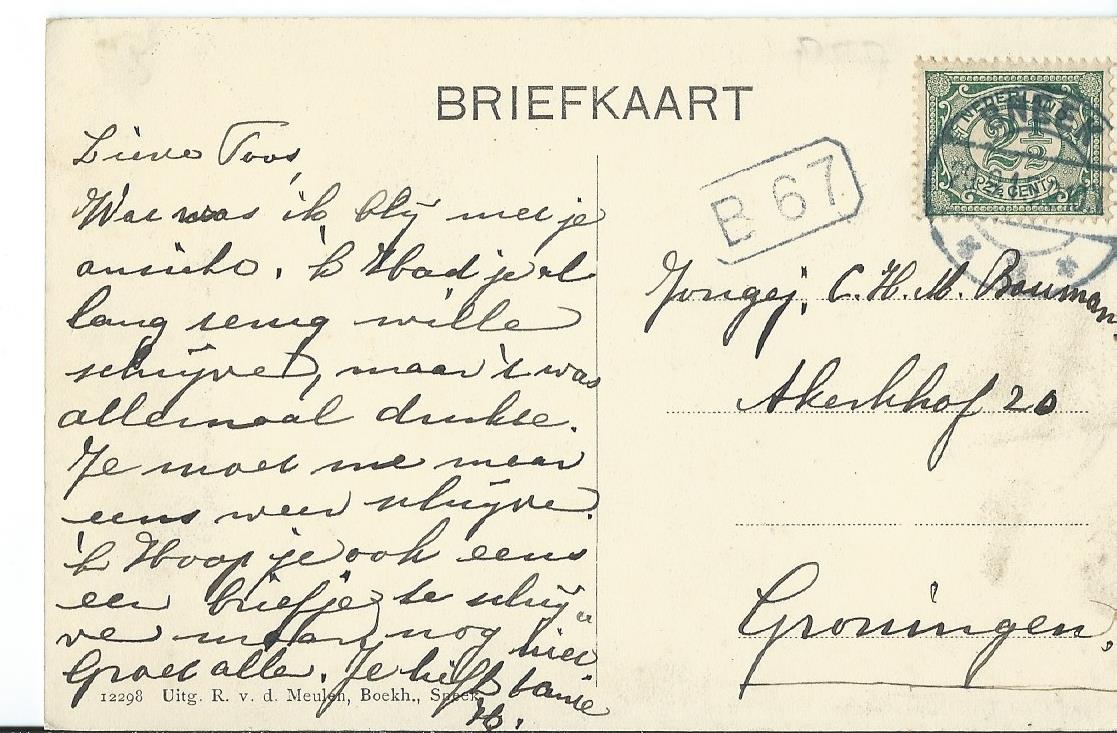 BRIEFKAART
Lieve Toos,
Wat was ik blij met je
ansicht. 'k Had je al
lang terug wille
schrijve, maar 't was
allemaal drukte.
Je moet me maar
eens weer schrijve.
'k Hoop je ook eens
een briefje te schrij"
ve maar nog niet
Groet alle. Je liefh. tante
H.
12298 Uitg. R. v. d. Meulen, Boekh., Sneek
NEDERLAND
2 1/2
CENT
SNEEK
B 67
Jongej. C. H. M. Bouman,
Akerkhof 20
Groningen,